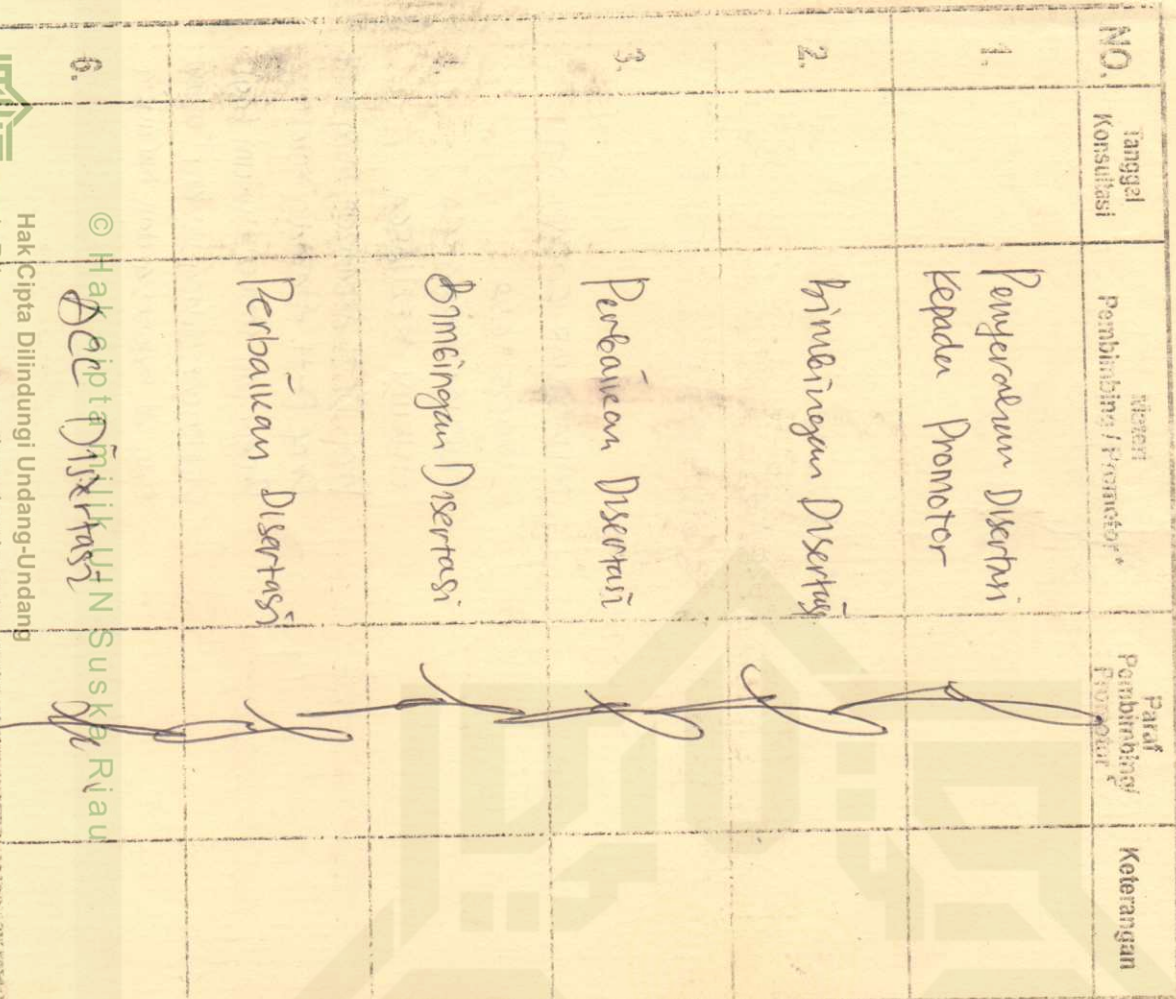 NO.
Tanggal
Konsultasi
Materi
Pembimbing / Promotor*
Paraf
Pembimbing/
Promotor*
Keterangan
1.
Penyerahan Disertasi
Kepada Promotor
2.
Bimbingan Disertasi
3.
Perbaikan Disertasi
4.
Bimbingan Disertasi
Perbaikan Disertasi
6.
ACC Disertasi
© Hak cipta milik UIN Suska Riau
Hak Cipta Dilindungi Undang-Undang